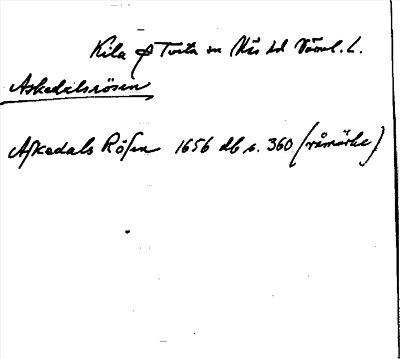 Kila o Tveta sn Näs hd Värml. l.
Askedalsrösen
Askedals Rösen 1656 db s. 360 (råmärke)